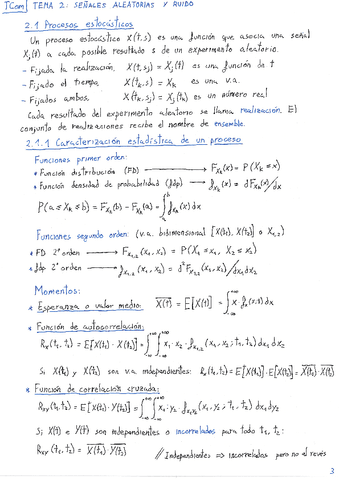 TCom TEMA 2: SEÑALES ALEATORIAS Y RUIDO
2.1 Procesos estocásticos
Un proceso estocástico X(t,s) es una función que asocia una señal
Xj(t) a cada posible resultado s de un experimento aleatorio.
- Fijada la realización. X(t,sj) = Xj(t) es una función de t
- Fijado el tiempo. X(tk,s) = Xk es una v.a.
- Fijados ambos. X(tk,sj) = Xj(tk) es un número real
Cada resultado del experimento aleatorio se llama realización. El
conjunto de realizaciones recibe el nombre de ensemble.
2.1.1 Caracterización estadística de un proceso
Funciones primer orden:
* Función distribución (FD) → F_Xk(x) = P(Xk ≤ x)
* Función densidad de probabilidad (fdp) → f_Xk(x) = dF_Xk(x)/dx
P(a ≤ Xk ≤ b) = F_Xk(b) - F_Xk(a) = ∫_a^b f_Xk(x) dx
Funciones segundo orden: (v.a. bidimensional [X(t1), X(t2)] o X1,2)
* FD 2º orden → F_X1,2(x1, x2) = P(X1 ≤ x1, X2 ≤ x2)
* fdp 2º orden → f_X1,2(x1, x2) = d²F_X1,2(x1, x2)/dx1dx2
Momentos:
* Esperanza o valor medio: X(t) = E[X(t)] = ∫_-∞^+∞ x f_x(x,t) dx
* Función de autocorrelación:
Rx(t1, t2) = E[X(t1) · X(t2)] = ∫_-∞^+∞ ∫_-∞^+∞ x1 · x2 · f_X1,2(x1, x2; t1, t2) dx1 dx2
Si X(t1) y X(t2) son v.a. independientes: Rx(t1,t2) = E[X(t1)] · E[X(t2)] = X(t1) · X(t2)
* Función de correlación cruzada:
Rxy(t1, t2) = E[X(t1) · Y(t2)] = ∫_-∞^+∞ ∫_-∞^+∞ x1 · y2 · f_X1Y2(x1, y2; t1, t2) dx1 dy2
Si X(t) e Y(t) son independientes o incorrelados para todo t1, t2:
Rxy(t1, t2) = X(t1) · Y(t2) // Independientes ⇒ incorrelados pero no al revés
3